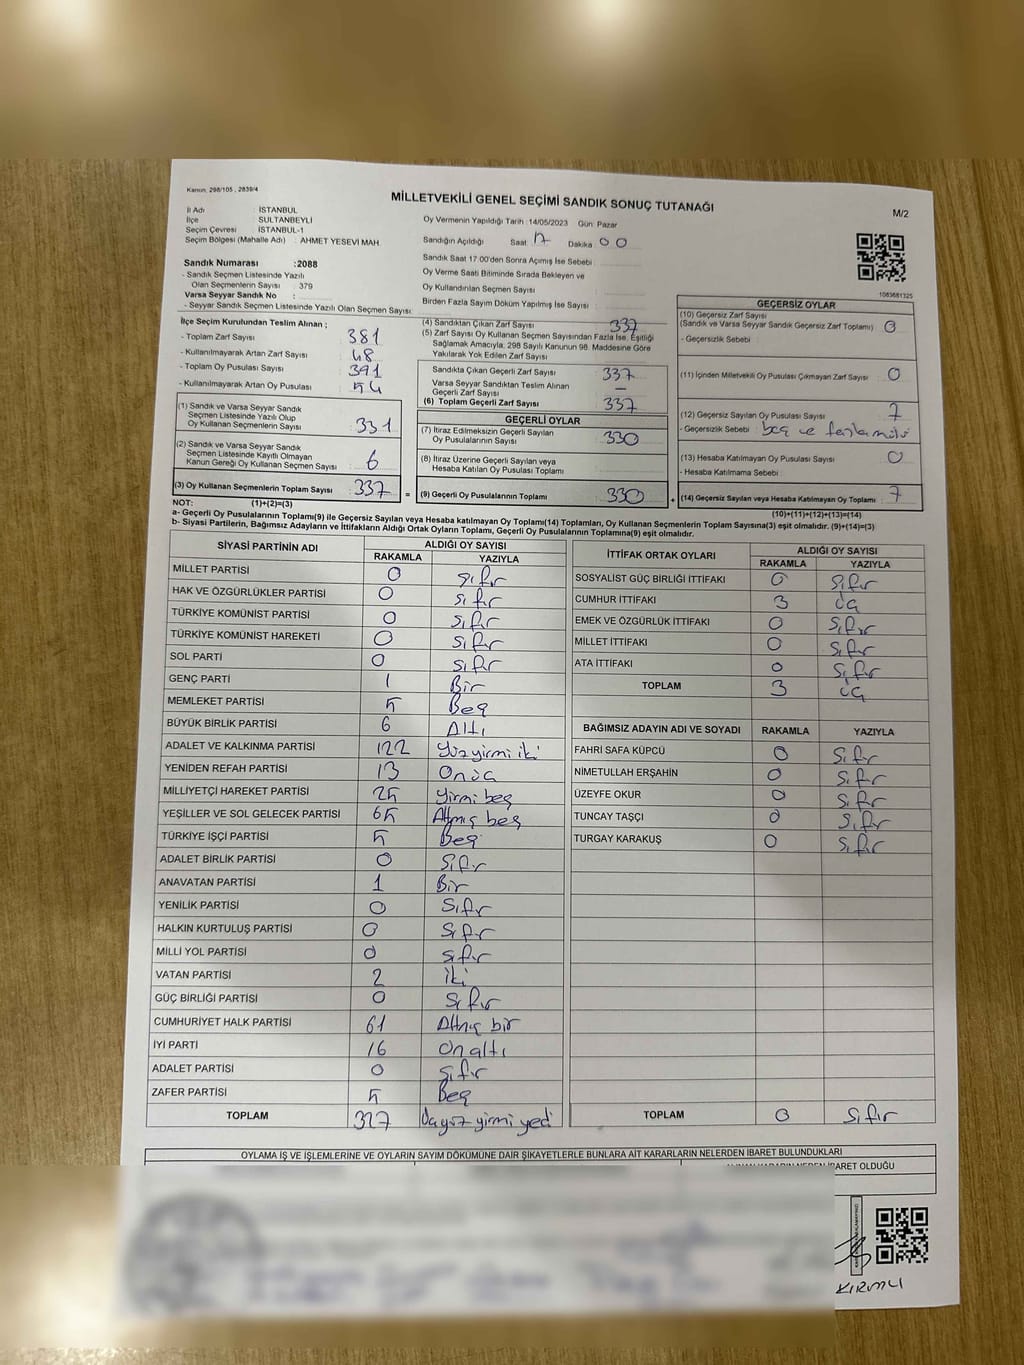 Kanun, 298/105 , 2839/4
MİLLETVEKİLİ GENEL SEÇİMİ SANDIK SONUÇ TUTANAĞI
M/2
İl Adı : İSTANBUL
İlçe : SULTANBEYLİ
Seçim Çevresi : İSTANBUL-1
Seçim Bölgesi (Mahalle Adı) : AHMET YESEVİ MAH.
Oy Vermenin Yapıldığı Tarih : 14/05/2023 Gün : Pazar
Sandığın Açıldığı Saat : 17 Dakika : 00
Sandık Saat 17:00'den Sonra Açımış İse Sebebi :
Oy Verme Saati Bitiminde Sırada Bekleyen ve
Oy Kullandırılan Seçmen Sayısı :
Birden Fazla Sayım Döküm Yapılmış İse Sayısı :
Sandık Numarası :2088
- Sandık Seçmen Listesinde Yazılı
Olan Seçmenlerin Sayısı : 379
Varsa Seyyar Sandık No :
- Seyyar Sandık Seçmen Listesinde Yazılı Olan Seçmen Sayısı:
1083681325
İlçe Seçim Kurulundan Teslim Alınan ;
- Toplam Zarf Sayısı : 381
- Kullanılmayarak Artan Zarf Sayısı : 48
- Toplam Oy Pusulası Sayısı : 391
- Kullanılmayarak Artan Oy Pusulası : 54
(1) Sandık ve Varsa Seyyar Sandık
Seçmen Listesinde Yazılı Olup
Oy Kullanan Seçmenlerin Sayısı : 331
(2) Sandık ve Varsa Seyyar Sandık
Seçmen Listesinde Kayıtlı Olmayan
Kanun Gereği Oy Kullanan Seçmen Sayısı : 6
(3) Oy Kullanan Seçmenlerin Toplam Sayısı : 337 =
(4) Sandıktan Çıkan Zarf Sayısı : 337
(5) Zarf Sayısı Oy Kullanan Seçmen Sayısından Fazla İse, Eşitliği
Sağlamak Amacıyla; 298 Sayılı Kanunun 98. Maddesine Göre
Yakılarak Yok Edilen Zarf Sayısı :
Sandıkta Çıkan Geçerli Zarf Sayısı : 337
Varsa Seyyar Sandıktan Teslim Alınan
Geçerli Zarf Sayısı : —
(6) Toplam Geçerli Zarf Sayısı : 337
GEÇERLİ OYLAR
(7) İtiraz Edilmeksizin Geçerli Sayılan
Oy Pusulalarının Sayısı : 330
(8) İtiraz Üzerine Geçerli Sayılan veya
Hesaba Katılan Oy Pusulası Toplamı :
(9) Geçerli Oy Pusulalarının Toplamı : 330 +
GEÇERSİZ OYLAR
(10) Geçersiz Zarf Sayısı
(Sandık ve Varsa Seyyar Sandık Geçersiz Zarf Toplamı) : 0
- Geçersizlik Sebebi :
(11) İçinden Milletvekili Oy Pusulası Çıkmayan Zarf Sayısı : 0
(12) Geçersiz Sayılan Oy Pusulası Sayısı : 7
- Geçersizlik Sebebi : boş ve fazla
(13) Hesaba Katılmayan Oy Pusulası Sayısı : 0
- Hesaba Katılmama Sebebi :
(14) Geçersiz Sayılan veya Hesaba Katılmayan Oy Toplamı : 7
NOT: (1)+(2)=(3)
(10)+(11)+(12)+(13)=(14)
a- Geçerli Oy Pusulalarının Toplamı(9) ile Geçersiz Sayılan veya Hesaba katılmayan Oy Toplamı(14) Toplamları, Oy Kullanan Seçmenlerin Toplam Sayısına(3) eşit olmalıdır. (9)+(14)=(3)
b- Siyasi Partilerin, Bağımsız Adayların ve İttifakların Aldığı Ortak Oyların Toplamı, Geçerli Oy Pusulalarının Toplamına(9) eşit olmalıdır.
SİYASİ PARTİNİN ADI ALDIĞI OY SAYISI
RAKAMLA YAZIYLA
MİLLET PARTİSİ 0 sıfır
HAK VE ÖZGÜRLÜKLER PARTİSİ 0 sıfır
TÜRKİYE KOMÜNİST PARTİSİ 0 sıfır
TÜRKİYE KOMÜNİST HAREKETİ 0 sıfır
SOL PARTİ 0 sıfır
GENÇ PARTİ 1 Bir
MEMLEKET PARTİSİ 5 Beş
BÜYÜK BİRLİK PARTİSİ 6 Altı
ADALET VE KALKINMA PARTİSİ 122 Yüzyirmi iki
YENİDEN REFAH PARTİSİ 13 Onüç
MİLLİYETÇİ HAREKET PARTİSİ 25 Yirmi beş
YEŞİLLER VE SOL GELECEK PARTİSİ 65 Altmış beş
TÜRKİYE İŞÇİ PARTİSİ 5 Beş
ADALET BİRLİK PARTİSİ 0 Sıfır
ANAVATAN PARTİSİ 1 Bir
YENİLİK PARTİSİ 0 Sıfır
HALKIN KURTULUŞ PARTİSİ 0 Sıfır
MİLLİ YOL PARTİSİ 0 Sıfır
VATAN PARTİSİ 2 İki
GÜÇ BİRLİĞİ PARTİSİ 0 Sıfır
CUMHURİYET HALK PARTİSİ 61 Altmış bir
İYİ PARTİ 16 Onaltı
ADALET PARTİSİ 0 Sıfır
ZAFER PARTİSİ 5 Beş
TOPLAM 327 üçyüz yirmi yedi
İTTİFAK ORTAK OYLARI ALDIĞI OY SAYISI
RAKAMLA YAZIYLA
SOSYALİST GÜÇ BİRLİĞİ İTTİFAKI 0 Sıfır
CUMHUR İTTİFAKI 3 üç
EMEK VE ÖZGÜRLÜK İTTİFAKI 0 Sıfır
MİLLET İTTİFAKI 0 Sıfır
ATA İTTİFAKI 0 Sıfır
TOPLAM 3 üç
BAĞIMSIZ ADAYIN ADI VE SOYADI RAKAMLA YAZIYLA
FAHRİ SAFA KÜPCÜ 0 Sıfır
NİMETULLAH ERŞAHİN 0 Sıfır
ÜZEYFE OKUR 0 Sıfır
TUNCAY TAŞÇI 0 Sıfır
TURGAY KARAKUŞ 0 Sıfır
TOPLAM 0 Sıfır
OYLAMA İŞ VE İŞLEMLERİNE VE OYLARIN SAYIM DÖKÜMÜNE DAİR ŞİKAYETLERLE BUNLARA AİT KARARLARIN NELERDEN İBARET BULUNDUKLARI
İBARET OLDUĞU